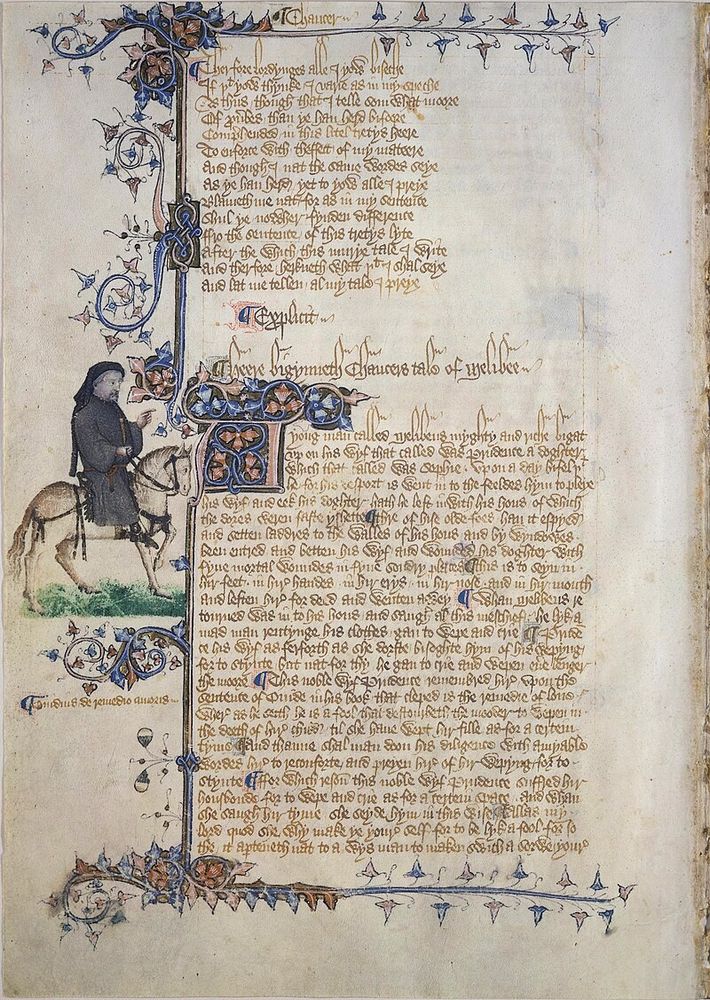 Chaucer
Therfore lordynges alle I yow biseche
If þt yow thynke I varie as in my speche
As thus though that I telle som what moore
Of prouerbes than ye han herd bifoore
Comprehended in this litel tretys heere
To enforce with theffect of my mateere
And though I nat the same wordes seye
As ye han herd yet to yow alle I preye
Blameth me nat for as in my sentence
Shul ye nowher fynden difference
Fro the sentence of this tretys lyte
After the which this murye tale I write
And therfore herkneth what þt I shal seye
And lat me tellen al my tale I preye
Explicit
Heere bigynneth Chaucers tale of Melibee
A yong man called Melibeus myghty and riche bigat
vp on his wyf that called was Prudence a doghter
which that called was Sophie Vpon a day bifel þt
he for his desport is went in to the feeldes hym to pleye
his wyf and eek his doghter hath he left in with his hous of which
the dores weren faste yshette Thre of hise olde foes han it espyed
and setten laddres to the walles of his hous and by wyndowes
been entred and betten his wyf and wounded his doghter with
fyue mortal woundes in fyue sondry places This is to seyn in
hir feet in hir handes in hir erys in hir nose and in hir mouth
and leften hir for deed and wenten awey Whan Melibeus re
tourned was in to his hous and saugh al this meschief he lyk a
mad man rentynge his clothes gan to wepe and crie Pruden
ce his wyf as ferforth as she dorste bisoghte hym of his wepyng
for to stynte but nat for thy he gan to crie and wepen euere lenger
the moore This noble wyf Prudence remembred hir vpon the
sentence of Ouide in his book that cleped is the remedie of loue
Ouidius de remedio amoris
wher as he seith he is a fool that destourbeth the mooder to wepen in
the deeth of hir child til she haue wept hir fille as for a certein
tyme And thanne shal man doon his diligence with amyable
wordes hir to reconforte and preyen hir of hir wepyng for to
stynte For which reson this noble wyf Prudence suffred hir
housbonde for to wepe and crie as for a certein space and whan
she saugh hir tyme she seyde hym in this wise Allas my
lord quod she why make ye your self for to be lyk a fool for so
the it aperteneth nat to a wys man to maken swich a sorwe your